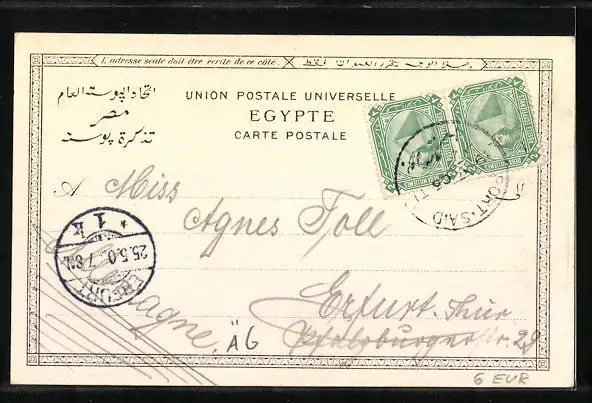 L'adresse seule doit être écrite de ce côté.
اتحاد البوستة العام
مصر
تذكرة بوستة
UNION POSTALE UNIVERSELLE
EGYPTE
CARTE POSTALE
PORT-SAID
A Miss
Agnes Toll
* 1 k
25.5.0. 7-8N.
ERFURT
Erfurt. Thür
Pfalzburgerstr. 29
ÄG
6 EUR